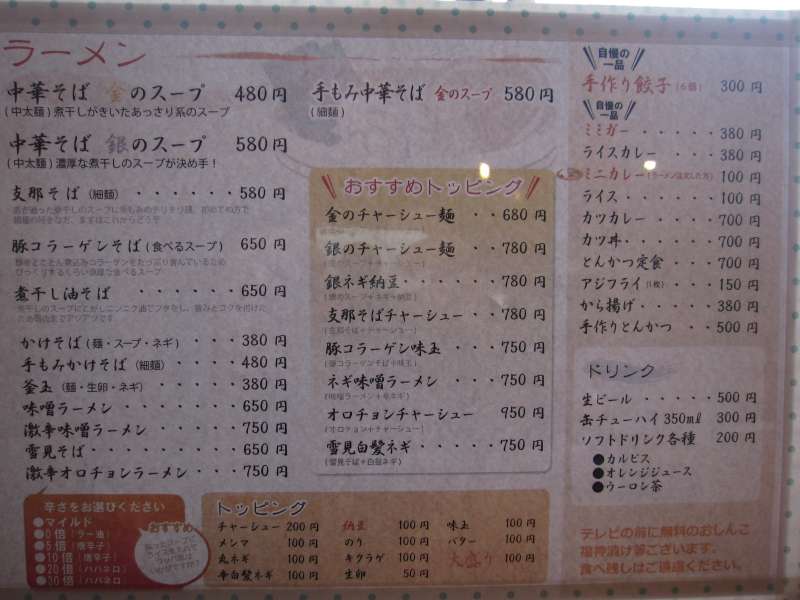 ラーメン
中華そば 金のスープ 480円
(中太麺)煮干しがきいたあっさり系のスープ
中華そば 銀のスープ 580円
(中太麺)濃厚な煮干しのスープが決め手!
支那そば(細麺)・・・・・・580円
豚コラーゲンそば(食べるスープ) 650円
煮干し油そば ・・・・・・650円
かけそば(麺・スープ・ネギ)・・・380円
手もみかけそば(細麺)・・・・480円
釜玉(麺・生卵・ネギ)・・・・380円
味噌ラーメン・・・・・・・・650円
激辛味噌ラーメン・・・・・・750円
雪見そば・・・・・・・・・・650円
激辛オロチョンラーメン・・・750円
辛さをお選びください
●マイルド
●0倍(ラー油)
●5倍(唐辛子)
●10倍(唐辛子)
●20倍(ハバネロ)
●30倍(ハバネロ)
おすすめ
手もみ中華そば 金のスープ 580円
(細麺)
おすすめトッピング
金のチャーシュー麺 ・・680円
銀のチャーシュー麺 ・・780円
銀ネギ納豆・・・・・・・780円
支那そばチャーシュー・・780円
豚コラーゲン味玉 ・・・750円
ネギ味噌ラーメン ・・・750円
オロチョンチャーシュー 950円
(オロチョン+チャーシュー)
雪見白髪ネギ・・・・・・750円
(雪見そば+白髪ネギ)
トッピング
チャーシュー 200円
メンマ 100円
丸ネギ 100円
辛白髪ネギ 100円
納豆 100円
のり 100円
キクラゲ 100円
生卵 50円
味玉 100円
バター 100円
大盛り 100円
自慢の
一品
手作り餃子(6個) 300円
自慢の
一品
ミミガー・・・・・380円
ライスカレー・・・380円
ミニカレー(ラーメン注文した方) 100円
ライス・・・・・・100円
カツカレー・・・・700円
カツ丼・・・・・・700円
とんかつ定食・・・700円
アジフライ(1枚)・・・150円
から揚げ・・・・・380円
手作りとんかつ・・500円
ドリンク
生ビール・・・・・500円
缶チューハイ350ml 300円
ソフトドリンク各種 200円
●カルピス
●オレンジジュース
●ウーロン茶
テレビの前に無料のおしんこ
福神漬け等ございます。
食べ残しはご遠慮ください。